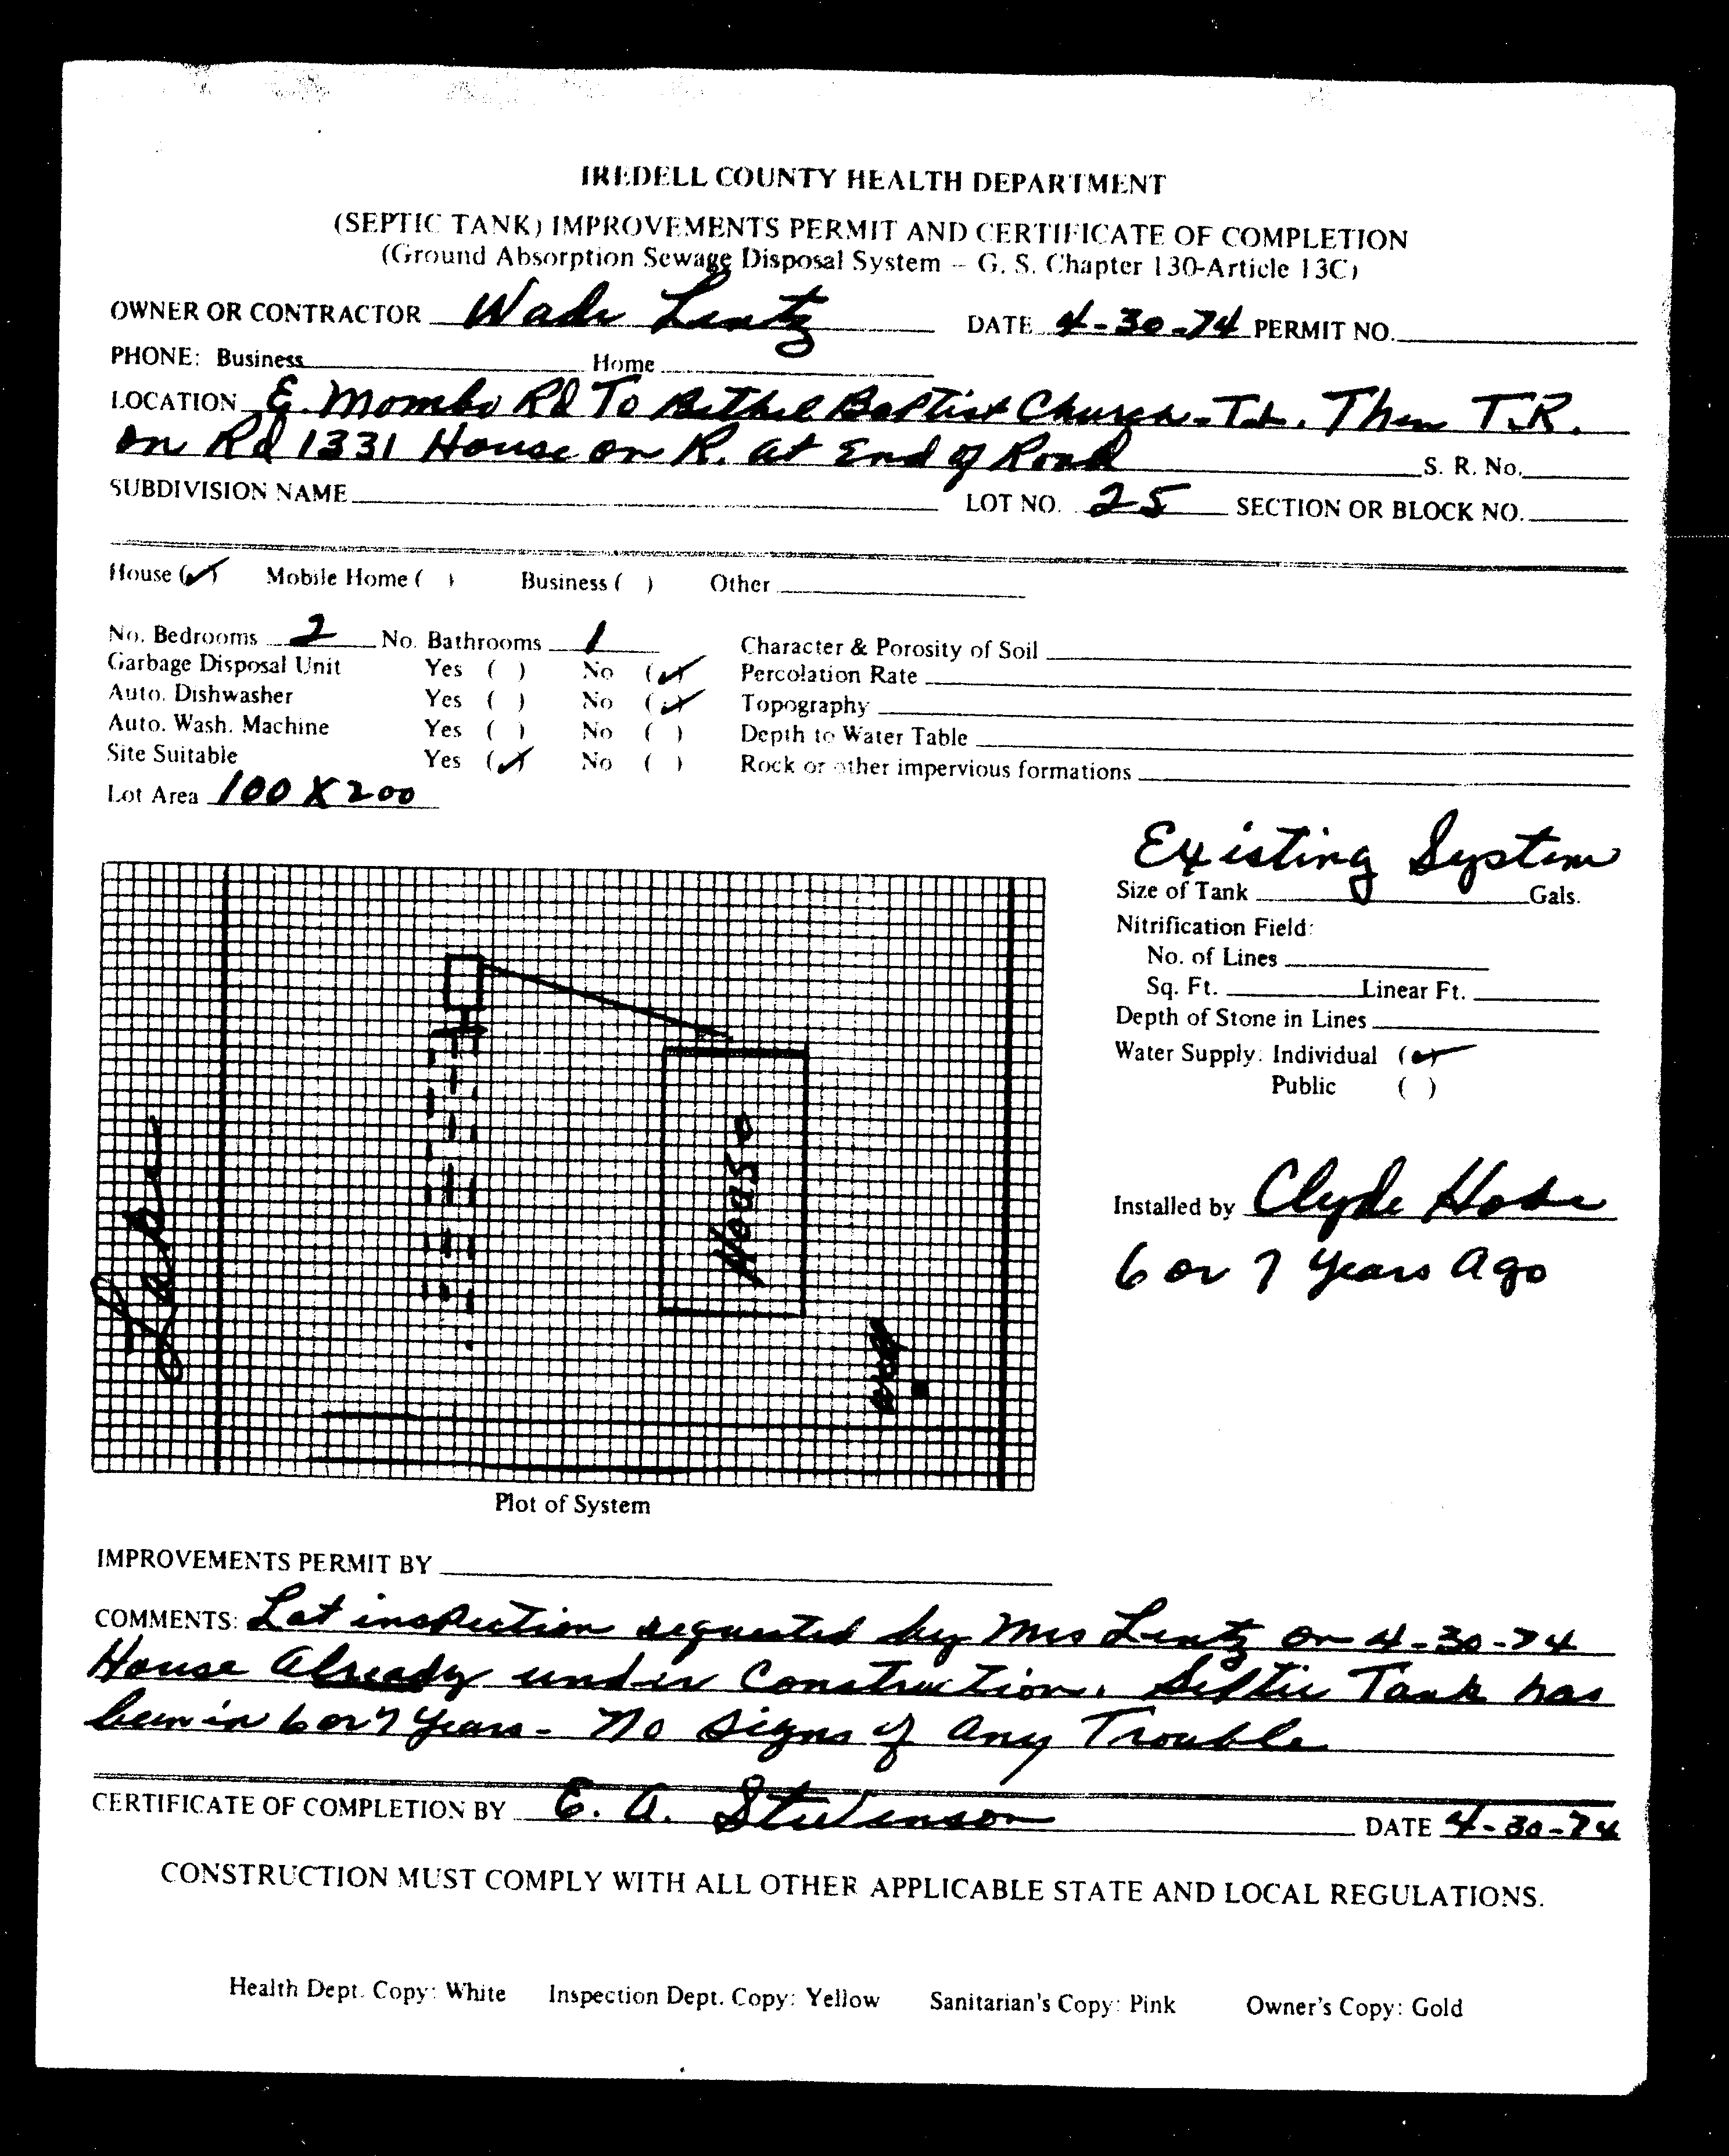 IREDELL COUNTY HEALTH DEPARTMENT
(SEPTIC TANK) IMPROVEMENTS PERMIT AND CERTIFICATE OF COMPLETION
(Ground Absorption Sewage Disposal System – G. S. Chapter 130-Article 13C)
OWNER OR CONTRACTOR Wade Lentz DATE 4-30-74 PERMIT NO.
PHONE: Business Home
LOCATION E. Mombo Rd To Bethel Baptist Church - T.L. Then T.R.
on Rd 1331 House on R. at End of Road S. R. No.
SUBDIVISION NAME LOT NO. 25 SECTION OR BLOCK NO.
House (✓) Mobile Home ( ) Business ( ) Other
No. Bedrooms 2 No. Bathrooms 1 Character & Porosity of Soil
Garbage Disposal Unit Yes ( ) No (✓) Percolation Rate
Auto. Dishwasher Yes ( ) No (✓) Topography
Auto. Wash. Machine Yes ( ) No ( ) Depth to Water Table
Site Suitable Yes (✓) No ( ) Rock or other impervious formations
Lot Area 100 X 200
Existing System
Size of Tank Gals.
Nitrification Field:
No. of Lines
Sq. Ft. Linear Ft.
Depth of Stone in Lines
Water Supply: Individual (✓)
Public ( )
Installed by Clyde
6 or 7 Years Ago
Lake
House
Plot of System
IMPROVEMENTS PERMIT BY
COMMENTS: Lot inspection requested by Mrs Lentz on 4-30-74
House Already under Construction. Septic Tank has
been in 6 or 7 years - No signs of Any Trouble
CERTIFICATE OF COMPLETION BY E. A. Stevenson DATE 4-30-74
CONSTRUCTION MUST COMPLY WITH ALL OTHER APPLICABLE STATE AND LOCAL REGULATIONS.
Health Dept. Copy: White Inspection Dept. Copy: Yellow Sanitarian's Copy: Pink Owner's Copy: Gold